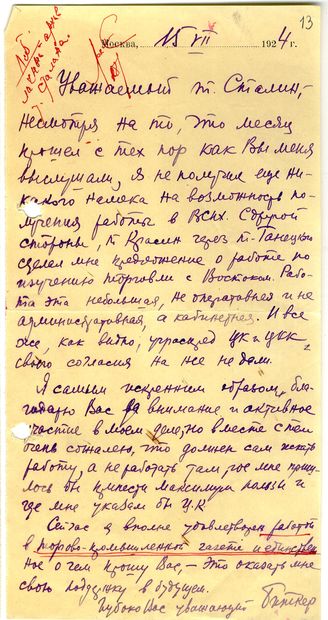 13
Москва, 15 VII 1924 г.
Уважаемый т. Сталин,
несмотря на то, что месяц
прошел с тех пор как Вы меня
выслушали, я не получил еще ни-
какого намека на возможность по-
лучения работы в ВСНХ. С другой
стороны, т. Красин через т. Ганецкого
сделал мне предложение о работе по
изучению торговли с Востоком. Рабо-
та эта небольшая, не оперативная и не
административная, а кабинетная. И все
же, как видно, учраспред ЦК и ЦКК
своего согласия на нее не дали.
Я самым искренним образом бла-
годарю Вас за внимание и активное
участие в моем деле, но вместе с тем
очень сожалею, что должен сам искать
работу, а не работать там, где мне приш-
лось бы принести максимум пользы и
где мне указал бы ЦК.
Сейчас я вполне удовлетворен работой
в торгово-промышленной газете и единствен-
ное о чем прошу Вас, – это оказать мне
свою поддержку в будущем.
Глубоко Вас уважающий